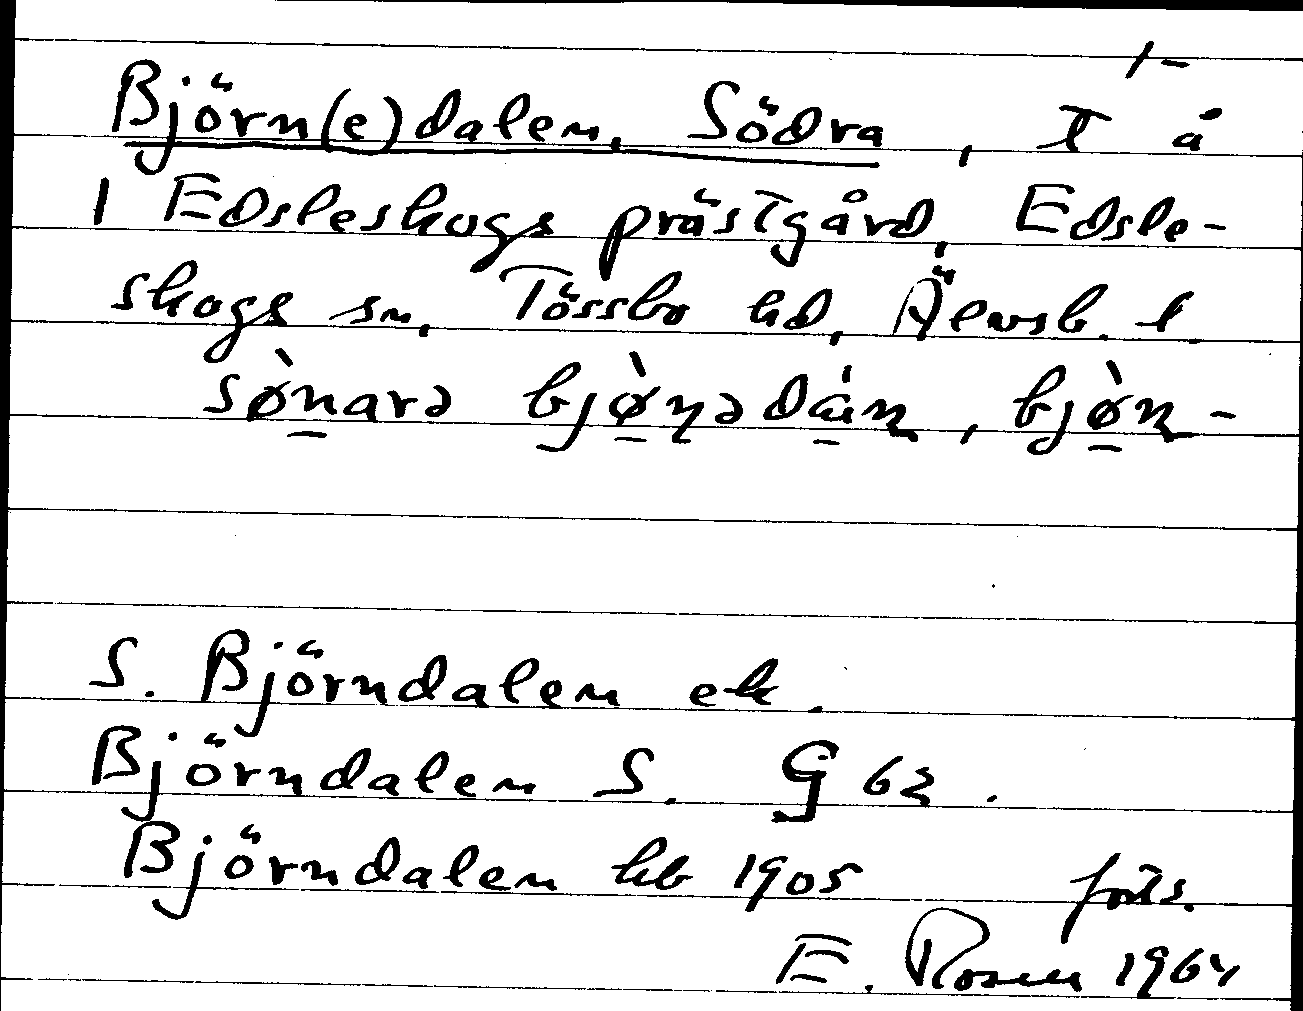 1-
Björn(e)dalen, Södra, t å
1 Edsleskogs prästgård, Edsle-
skogs sn, Tössbo hd, Älvsb. l
sø̀narə bjø̀ṇədáṇ, bjø̀ṇ-
S. Björndalen ek.
Björndalen S. G 62.
Björndalen hb 1905 forts.
E. Rosen 1964